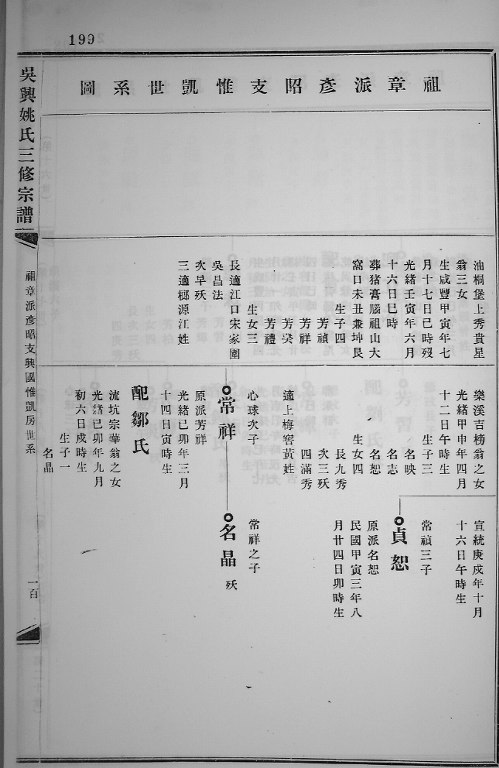 199
祖章派彥昭支惟凱世系圖
油榨堡上秀貴星
翁三女
生咸豐甲寅年七
月十七日巳時歿
光緒壬寅年六月
十六日巳時
葬猪膏腦祖山大
窩口未丑兼坤艮
生子四
芳禎
芳祥
芳奕
芳禮
生女三
長適江口宋家園
吳昌法
次早殀
三適梛源江姓
樂溪吉榜翁之女
光緒甲申年四月
十二日午時生
生子三
名映
名志
名恕
生女四
長九秀
次三殀
四滿秀
適上梅窖黃姓
常祥
心球次子
原派芳祥
光緒己卯年三月
十四日寅時生
配鄒氏
流坑宗華翁之女
光緒己卯年九月
初六日戌時生
生子一
名晶
宣統庚戌年十月
十六日午時生
貞恕
常禎三子
原派名恕
民國甲寅三年八
月廿四日卯時生
名晶
常祥之子
殀
吳興姚氏三修宗譜
祖章派彥昭支興國惟凱房世系
一百